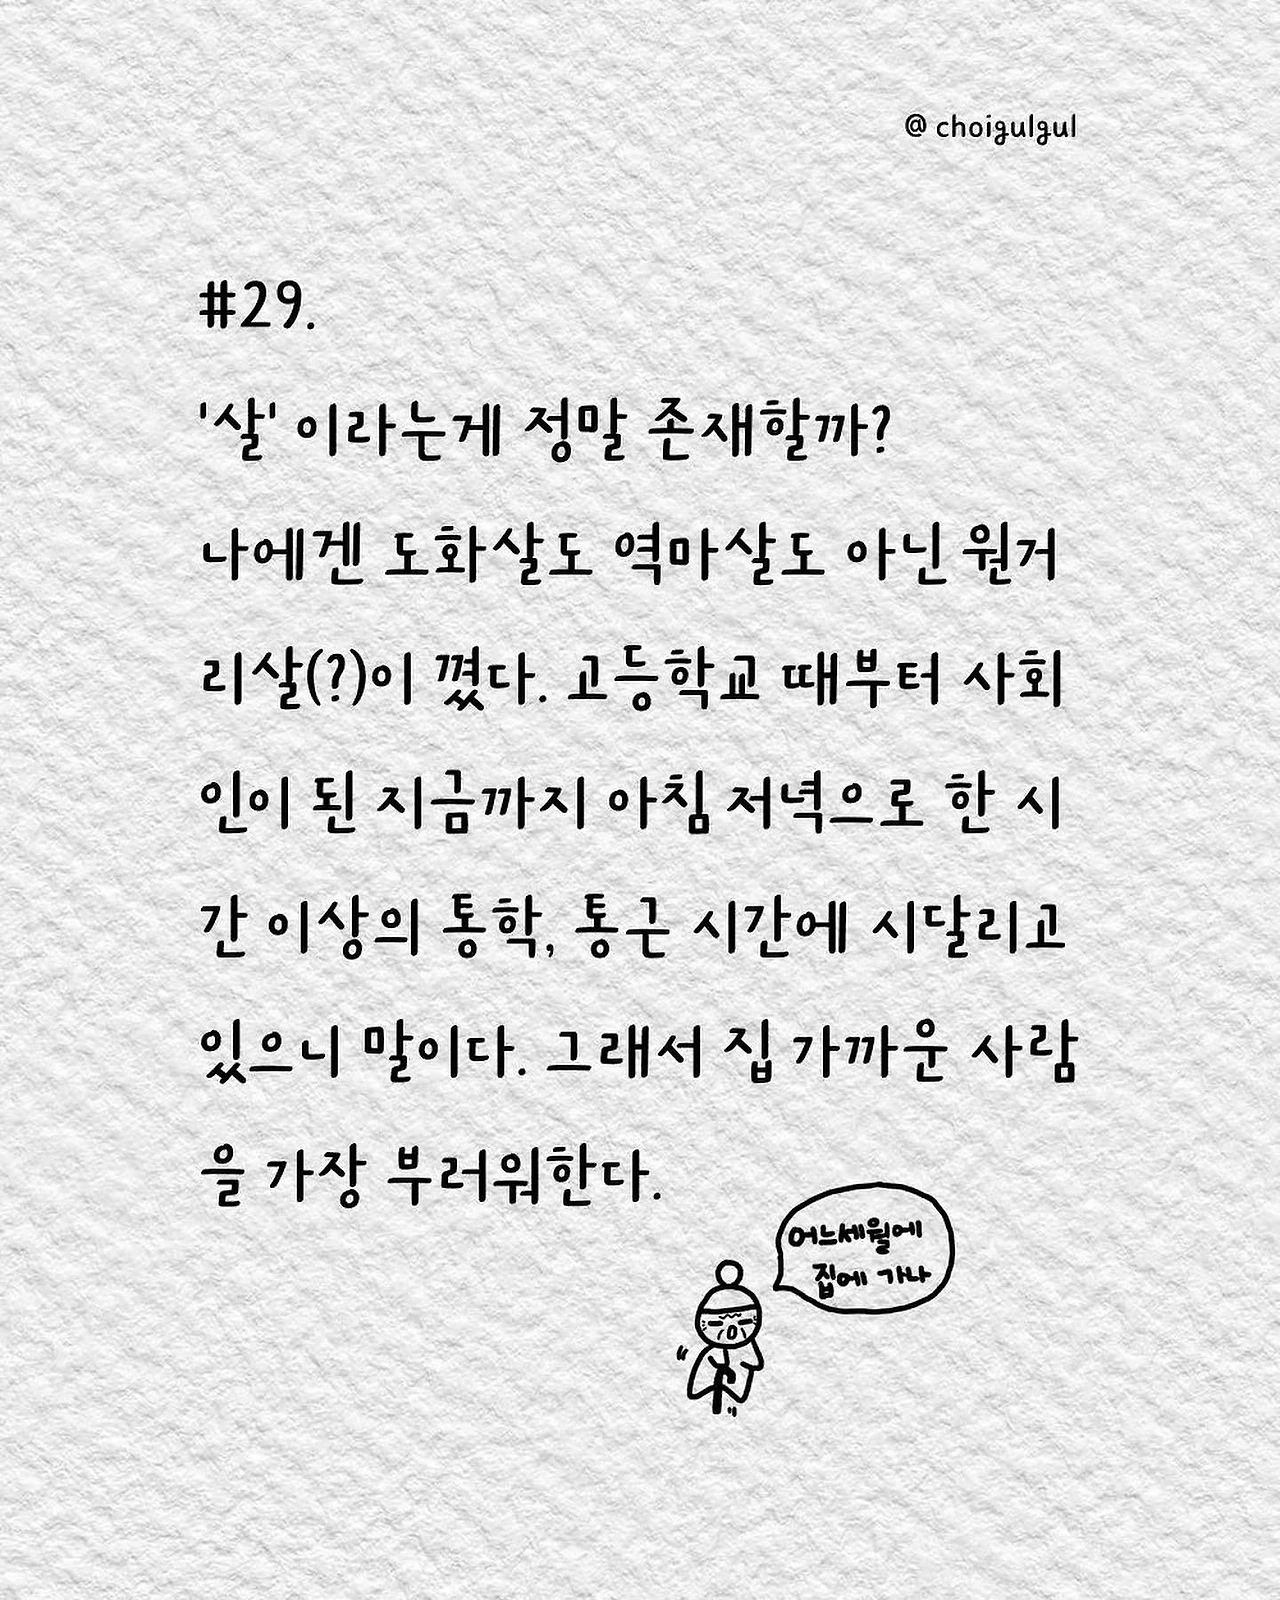 @ choigulgul
#29.
'살' 이라는게 정말 존재할까?
나에겐 도화살도 역마살도 아닌 원거
리살(?)이 꼈다. 고등학교 때부터 사회
인이 된 지금까지 아침 저녁으로 한 시
간 이상의 통학, 통근 시간에 시달리고
있으니 말이다. 그래서 집 가까운 사람
을 가장 부러워한다.
어느세월에
집에 가나